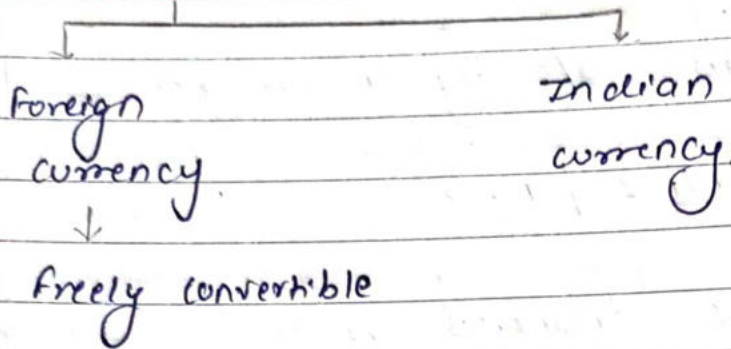 Foreign
currency
Indian
currency
Freely convertible